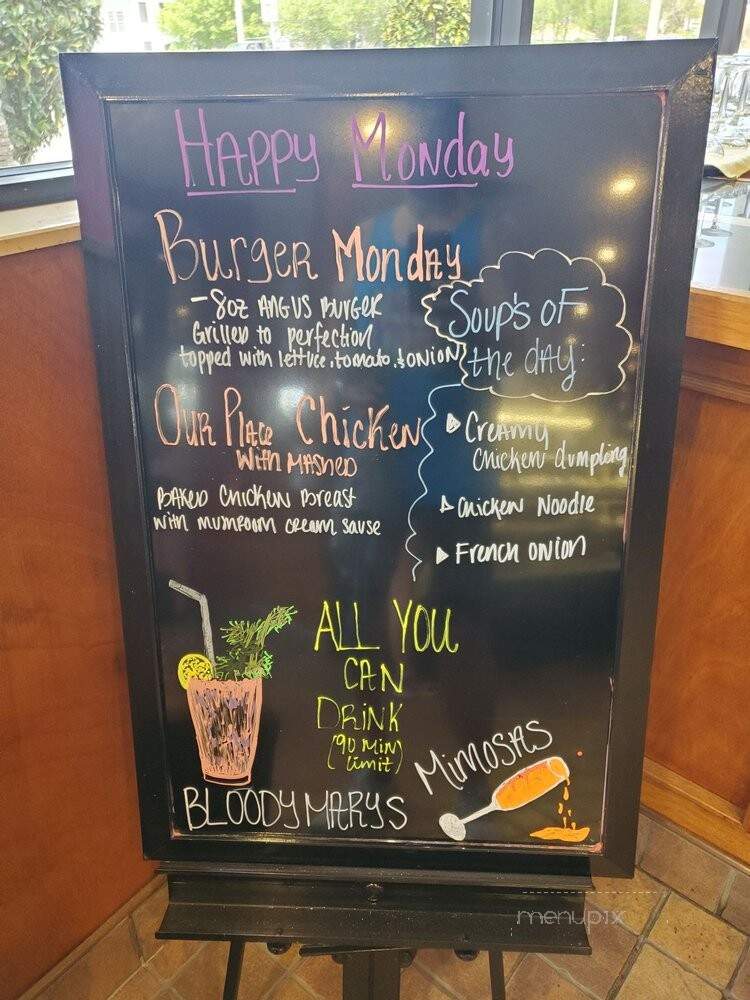 Happy Monday
Burger Monday
- 8oz Angus Burger
Grilled to perfection
topped with lettuce, tomato, & onion
Our Place Chicken
with mashed
Baked Chicken Breast
with mushroom cream sause
Soup's of
the day:
Creamy
Chicken dumpling
Chicken Noodle
French onion
ALL YOU
CAN
DRINK
(90 min
limit)
BLOODY MARYS
MIMOSAS
menupix